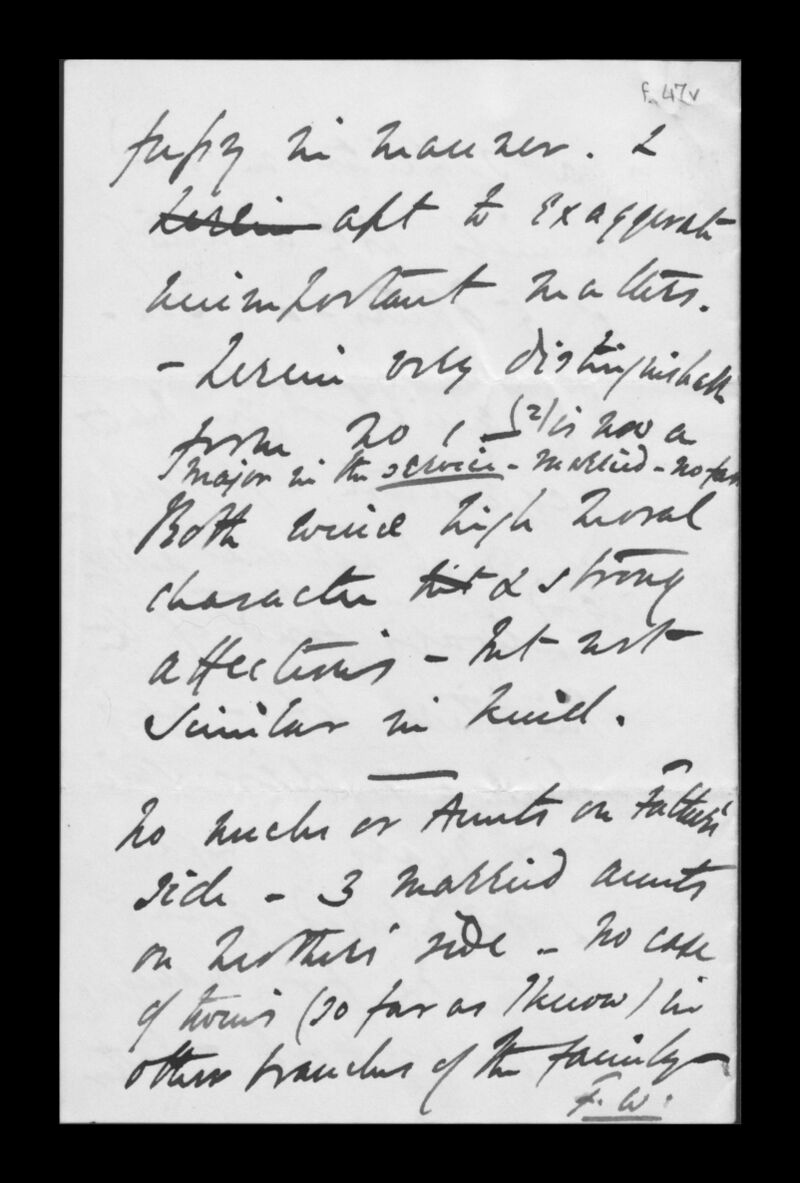 f. 47v
fussy in manner. &
herein apt to exaggerate
unimportant matters.
- herein very distinguishable
from No 1 (2) is now a
major in the service - married - no fam
Both were high moral
character but & strong
affections - but not
similar in kind.
No uncles or Aunts on Father's
side - 3 married aunts
on mother's side - No case
of twins (so far as I know) in
other branches of the family
F. W.